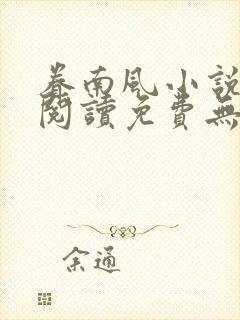 眷南風小說
閱讀免費無
余通